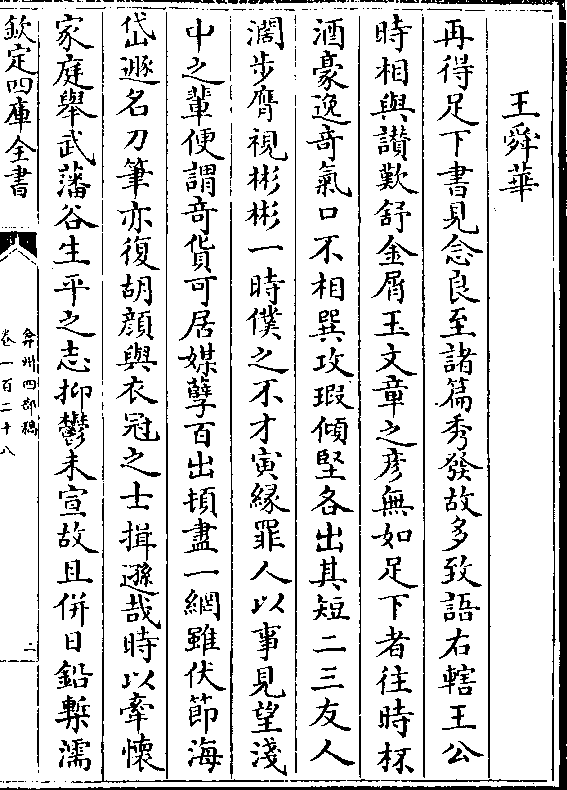 王舜華
再得足下書見念良至諸篇秀發故多致語右轄王公
時相與讃歎舒金屑玉文章之彦無如足下者往時杯
酒豪逸竒氣口不相巽攻瑕傾堅各出其短二三友人
濶步膺視彬彬一時僕之不才寅縁罪人以事見望淺
中之輩便謂竒貨可居媒孽百出頓盡一網雖伏節海
岱遯名刀筆亦復胡顔與衣冠之士揖遜哉時以牽懐
家庭舉武藩谷生平之志抑鬱未宣故且併日鉛槧濡
欽定四庫全書
弇州四部稿
卷一百二十八
二